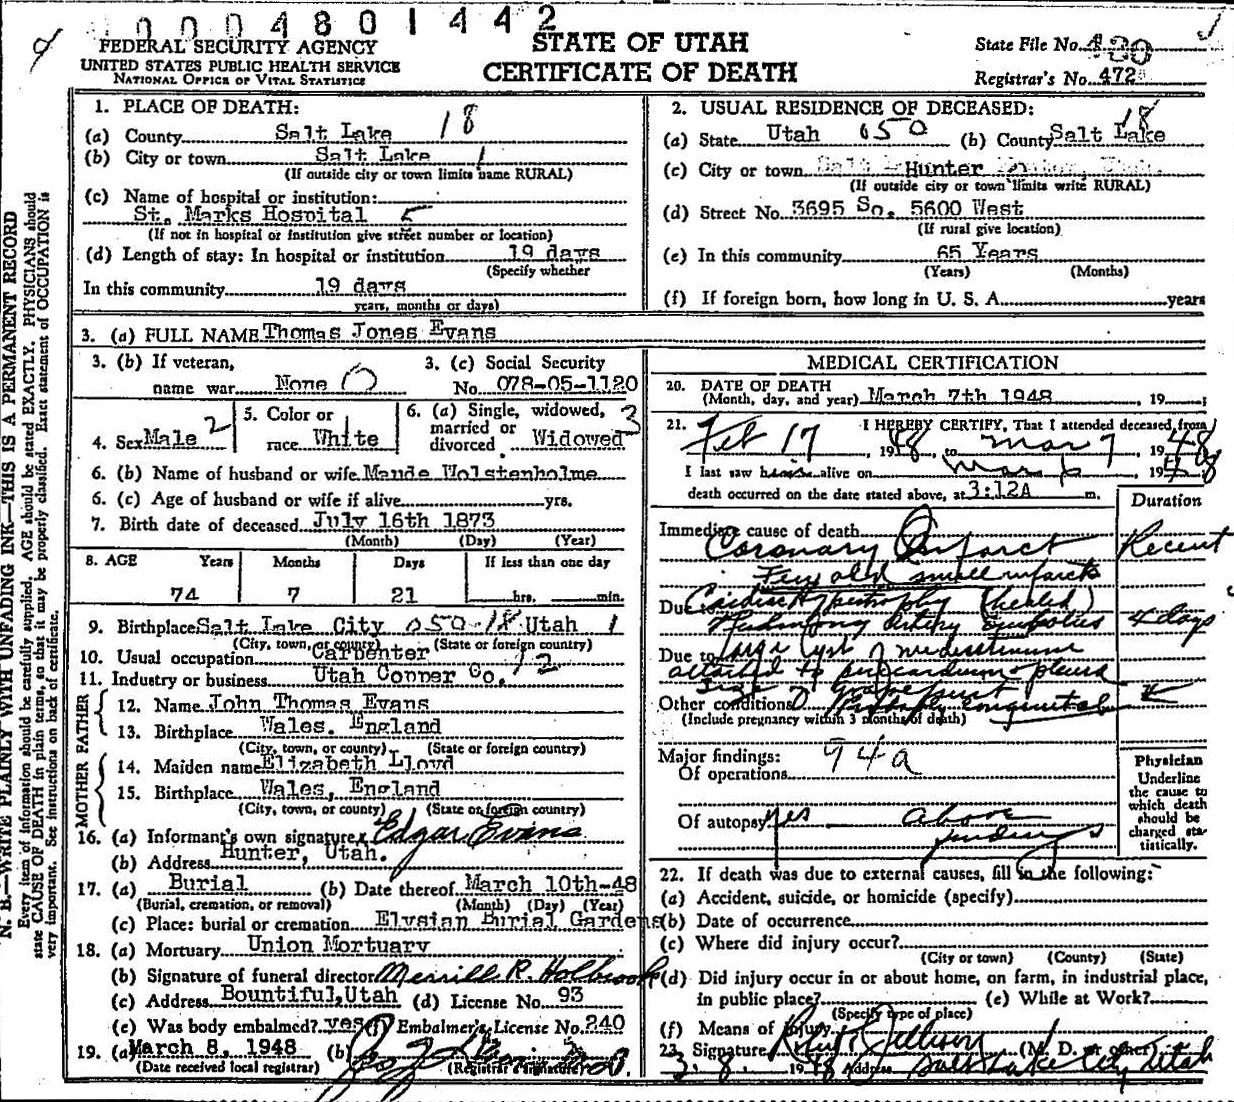 0004801442
FEDERAL SECURITY AGENCY
UNITED STATES PUBLIC HEALTH SERVICE
NATIONAL OFFICE OF VITAL STATISTICS
STATE OF UTAH
CERTIFICATE OF DEATH
State File No.
Registrar's No. 472
N. B.—WRITE PLAINLY WITH UNFADING INK—THIS IS A PERMANENT RECORD
Every item of information should be carefully supplied. AGE should be stated EXACTLY. PHYSICIANS should
state CAUSE OF DEATH in plain terms, so that it may be properly classified. Exact statement of OCCUPATION is
very important. See instructions on back of certificate.
1. PLACE OF DEATH:
(a) County Salt Lake 18
(b) City or town Salt Lake 1
(If outside city or town limits name RURAL)
(c) Name of hospital or institution:
St. Marks Hospital 5
(If not in hospital or institution give street number or location)
(d) Length of stay: In hospital or institution 19 days
(Specify whether
In this community 19 days
years, months or days)
2. USUAL RESIDENCE OF DECEASED:
18
(a) State Utah 050 (b) County Salt Lake
(c) City or town Hunter
(If outside city or town limits write RURAL)
(d) Street No. 3695 So. 5600 West
(If rural give location)
(e) In this community 65 Years
(Years) (Months)
(f) If foreign born, how long in U. S. A. years
3. (a) FULL NAME Thomas Jones Evans
3. (b) If veteran,
name war None 0
3. (c) Social Security
No. 078-05-1120
4. Sex Male 2
5. Color or
race White 1
6. (a) Single, widowed,
married or
divorced Widowed 3
6. (b) Name of husband or wife Maude Wolstenholme
6. (c) Age of husband or wife if alive yrs.
7. Birth date of deceased July 16th 1873
(Month) (Day) (Year)
8. AGE Years Months Days If less than one day
74 7 21 hrs. min.
9. Birthplace Salt Lake City 050-18 Utah 1
(City, town, or county) (State or foreign country)
10. Usual occupation Carpenter
11. Industry or business Utah Copper Co. 12
FATHER
12. Name John Thomas Evans
13. Birthplace Wales. England
(City, town, or county) (State or foreign country)
MOTHER
14. Maiden name Elizabeth Lloyd
15. Birthplace Wales, England
(City, town, or county) (State or foreign country)
16. (a) Informant's own signature x Edgar Evans
(b) Address Hunter, Utah.
17. (a) Burial (b) Date thereof March 10th-48
(Burial, cremation, or removal) (Month) (Day) (Year)
(c) Place: burial or cremation Elysian Burial Gardens
18. (a) Mortuary Union Mortuary
(b) Signature of funeral director Merrill R. Holbrook
(c) Address Bountiful, Utah (d) License No. 93
(e) Was body embalmed? yes (f) Embalmer's License No. 240
19. (a) March 8, 1948 (b)
(Date received local registrar) (Registrar's signature)
MEDICAL CERTIFICATION
20. DATE OF DEATH
(Month, day, and year) March 7th 1948, 19 ;
21. I HEREBY CERTIFY, That I attended deceased from
Feb 17, 1948, to Mar 7, 1948
I last saw him alive on Mar 6, 1948
death occurred on the date stated above, at 3:12A m.
Duration
Immediate cause of death
Coronary Infarct Recent
Few old small infarcts
Due to Cardiac Hypertrophy (healed)
Pulmonary Artery Embolies 4 days
Due to Large Cyst of mediastinum
attached to pericardium & pleura
Size grapefruit
Other conditions Probably congenital
(Include pregnancy within 3 months of death)
Major findings:
Of operations 94a
Of autopsy yes above
findings
Physician
Underline
the cause to
which death
should be
charged sta-
tistically.
22. If death was due to external causes, fill in the following:
(a) Accident, suicide, or homicide (specify)
(b) Date of occurrence
(c) Where did injury occur?
(City or town) (County) (State)
(d) Did injury occur in or about home, on farm, in industrial place,
in public place? (e) While at Work?
(Specify type of place)
(f) Means of injury
23. Signature (M. D. or other)
3. 8. 1948 Address Salt Lake City Utah